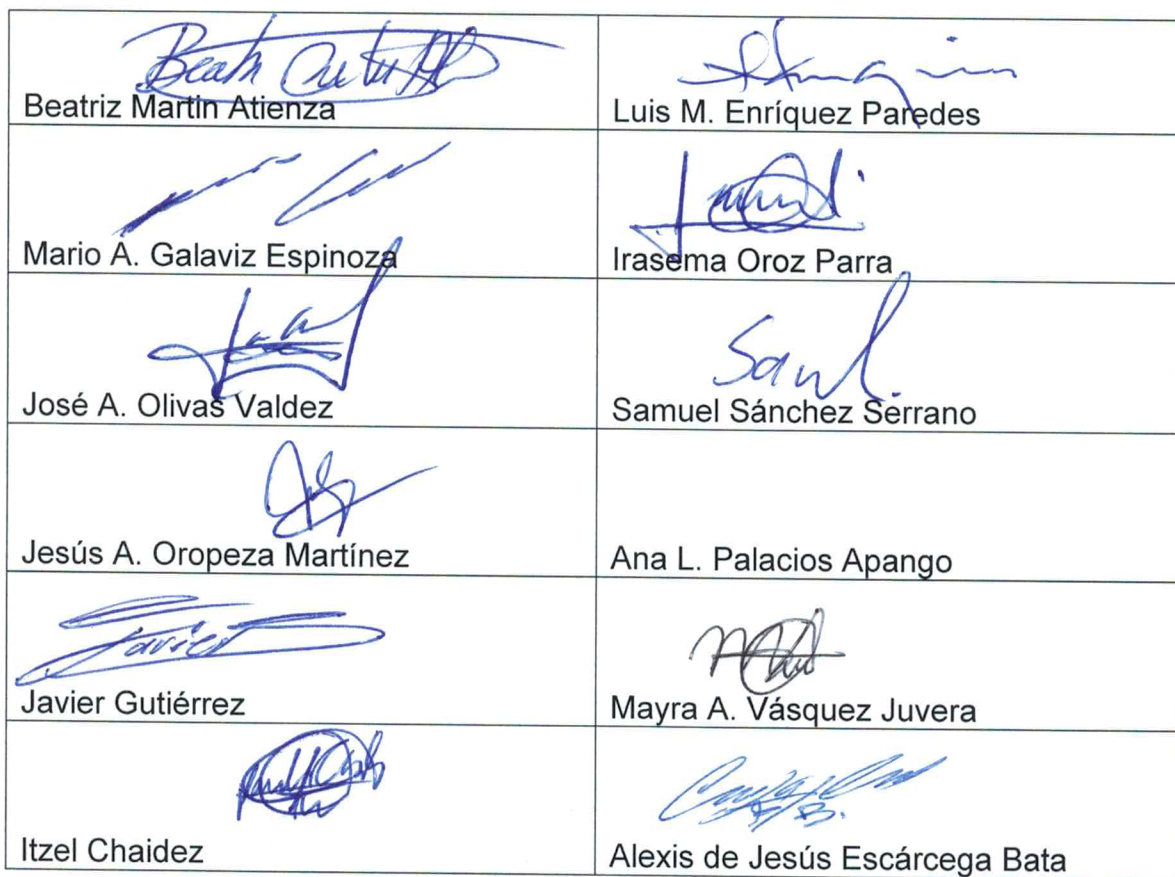 Beatriz Martin Atienza
Luis M. Enríquez Paredes
Mario A. Galaviz Espinoza
Irasema Oroz Parra
José A. Olivas Valdez
Samuel Sánchez Serrano
Jesús A. Oropeza Martínez
Ana L. Palacios Apango
Javier
Javier Gutiérrez
Mayra A. Vásquez Juvera
Itzel Chaidez
Alexis de Jesús Escárcega Bata